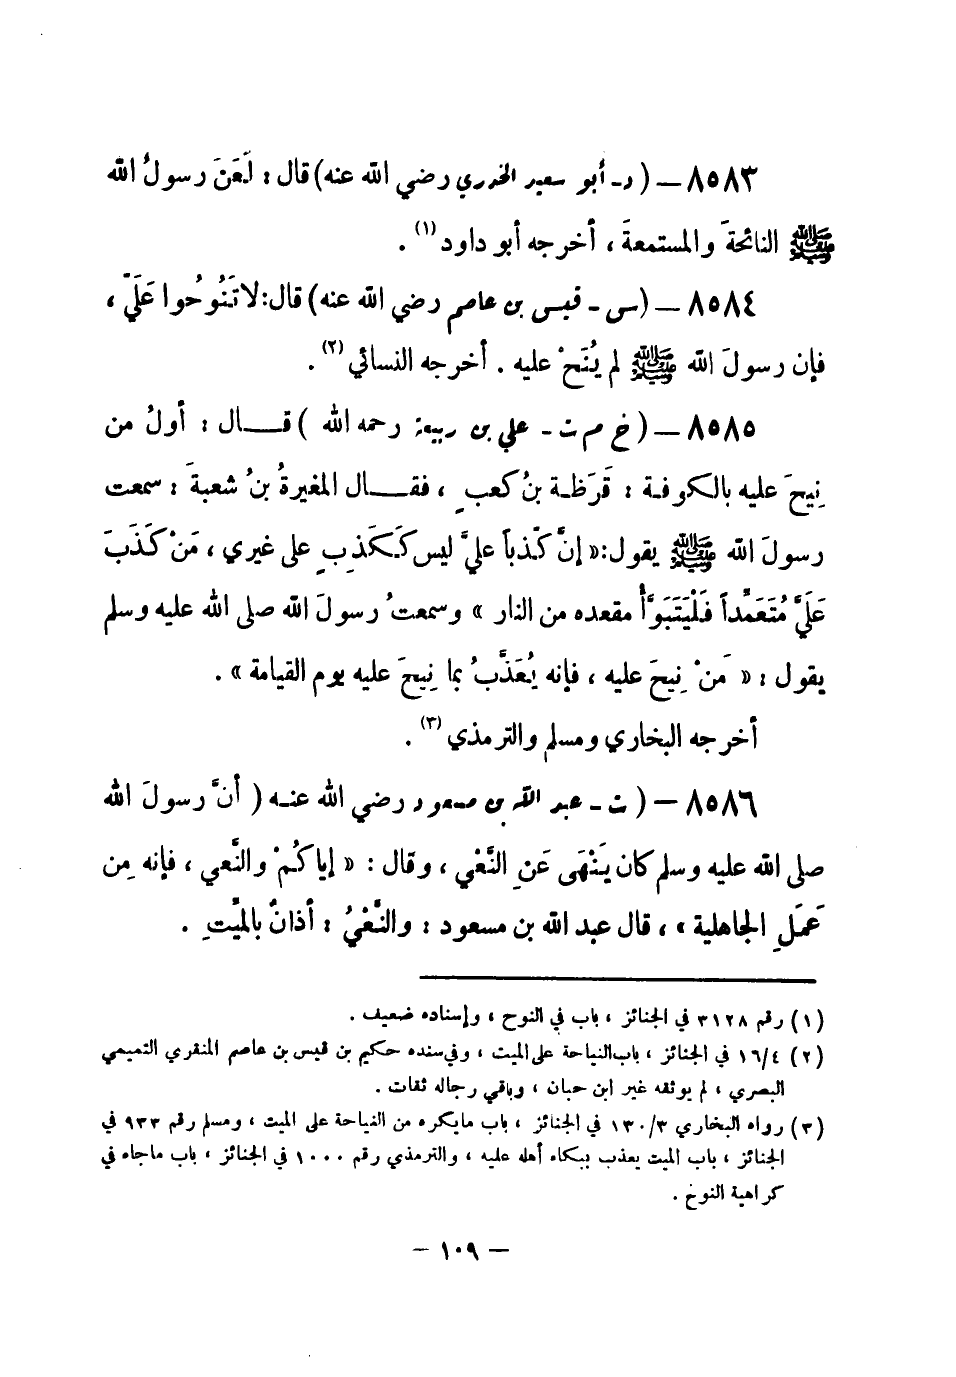 ٨٥٨٣ – ( د - أبو سعيد الخدري رضي الله عنه) قال : لَعَنَ رسولُ الله
ﷺ النائحةَ والمستمعةَ ، أخرجه أبو داود (١) .
٨٥٨٤ – (س - قيس بن عاصم رضي الله عنه) قال:لا تَنُوحُوا عَلَيَّ ،
فإن رسولَ الله ﷺ لم يُنَحْ عليه . أخرجه النسائي (٢) .
٨٥٨٥ – ( خ م ت - علي بن ربيعة رحمه الله ) قــال : أولُ من
نِيحَ عليه بالكوفة : قَرَظَة بنُ كعبٍ ، فقــال المغيرةُ بنُ شعبةَ : سمعت
رسولَ الله ﷺ يقول:« إنَّ كَذباً عليَّ ليس كَكَذِبٍ على غيري ، مَنْ كَذَبَ
عَلَيَّ مُتَعَمِّداً فَلْيَتَبَوَّأْ مقعده من النار » وسمعتُ رسولَ الله صلى الله عليه وسلم
يقول : « مَنْ نِيحَ عليه ، فإنه يُعَذَّبُ بما نِيحَ عليه يوم القيامة » .
أخرجه البخاري ومسلم والترمذي (٣) .
٨٥٨٦ – ( ت - عبد الله بن مسعود رضي الله عنه ( أنَّ رسولَ الله
صلى الله عليه وسلم كان يَنْهَى عَنِ النَّعْي ، وقال : « إياكُمْ والنَّعي ، فإنه مِن
عَمَلِ الجاهلية » ، قال عبد الله بن مسعود : والنَّعْيُ : أذانٌ بالميِّتِ .
(١) رقم ٣١٢٨ في الجنائز ، باب في النوح ، وإسناده ضعيف .
(٢) ١٦/٤ في الجنائز ، باب النياحة على الميت ، وفي سنده حكيم بن قيس بن عاصم المنقري التميمي
البصري ، لم يوثقه غير ابن حبان ، وباقي رجاله ثقات .
(٣) رواه البخاري ١٣٠/٣ في الجنائز ، باب مايكره من النياحة على الميت ، ومسلم رقم ٩٣٣ في
الجنائز ، باب الميت يعذب ببكاء أهله عليه ، والترمذي رقم ١٠٠٠ في الجنائز ، باب ماجاء في
كراهية النوح .
– ١٠٩ –